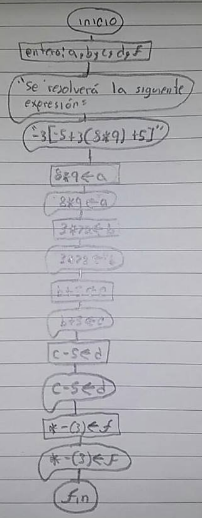 inicio
entero: a, b, c, d, f
"Se resolverá la siguiente
expresión:
"-3[-5+3(8*9)+5]"
8*9←a
8*9←a
3*72←b
b+5←c
C-5←d
C-5←d
*-(3)←f
*-(3)←f
fin